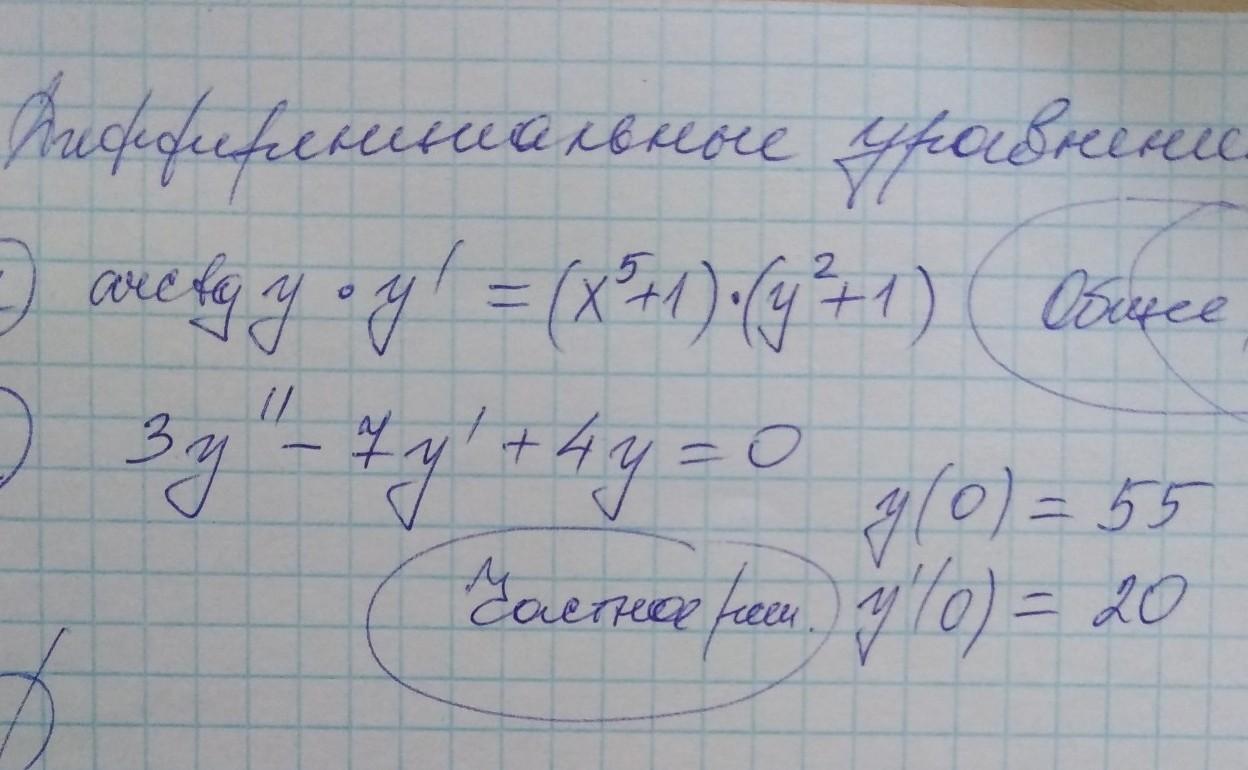 Дифференциальные уравнения
arctg y · y' = (x⁵+1)·(y²+1) Общее
3y'' - 7y' + 4y = 0
y(0) = 55
Частное реш. y'(0) = 20